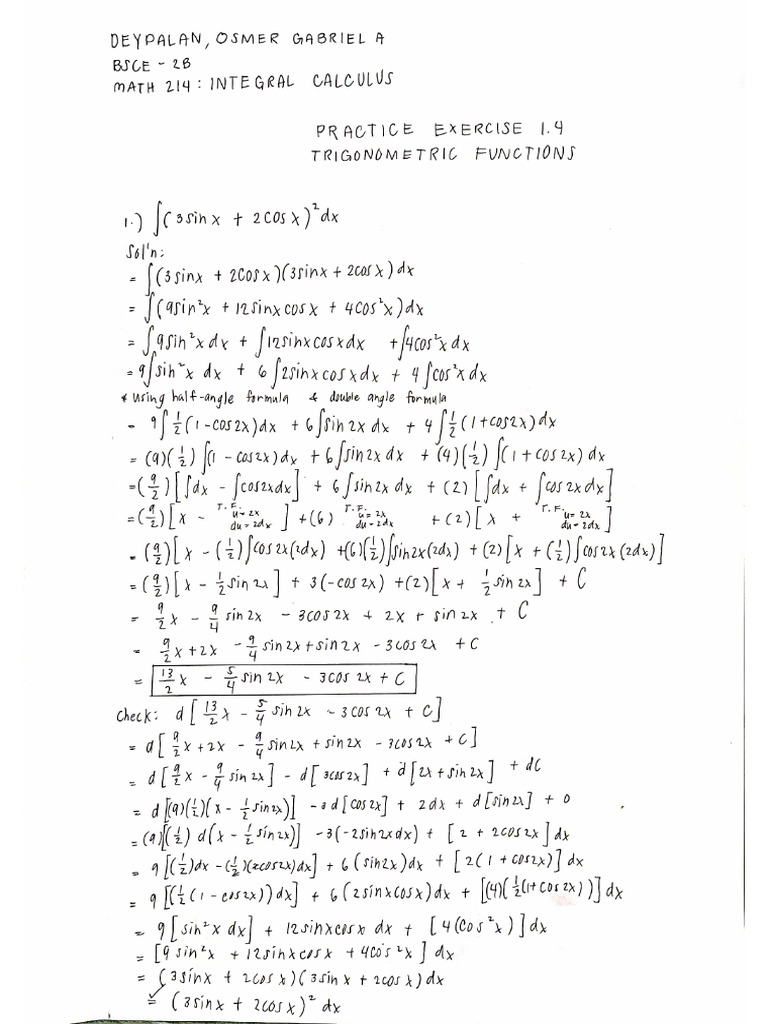 DEYPALAN, OSMER GABRIEL A
BSCE - 2B
MATH 214: INTEGRAL CALCULUS
PRACTICE EXERCISE 1.4
TRIGONOMETRIC FUNCTIONS
1.) ∫(3sinx + 2cosx)²dx
Sol'n:
= ∫(3sinx + 2cosx)(3sinx + 2cosx)dx
= ∫(9sin²x + 12sinxcosx + 4cos²x)dx
= ∫9sin²x dx + ∫12sinxcosxdx + ∫4cos²x dx
= 9∫sin²x dx + 6∫2sinxcosxdx + 4∫cos²x dx
* using half-angle formula & double angle formula
= 9∫½(1-cos2x)dx + 6∫sin2x dx + 4∫½(1+cos2x)dx
= (9)(½)∫(1-cos2x)dx + 6∫sin2x dx + (4)(½)∫(1+cos2x)dx
= (9/2)[∫dx - ∫cos2xdx] + 6∫sin2x dx + (2)[∫dx + ∫cos2x dx]
= (9/2)[x - T.F. u=2x du=2dx ] + (6) T.F. u=2x du=2dx + (2)[x + T.F. u=2x du=2dx]
= (9/2)[x - (½)∫cos2x(2dx) + (6)(½)∫sin2x(2dx) + (2)[x + (½)∫cos2x(2dx)]
= (9/2)[x - ½sin2x] + 3(-cos2x) + (2)[x + ½sin2x] + C
= 9/2x - 9/4 sin2x - 3cos2x + 2x + sin2x + C
= 9/2x + 2x - 9/4 sin2x + sin2x - 3cos2x + C
= 13/2x - 5/4 sin2x - 3cos2x + C
Check: d[13/2x - 5/4 sin2x - 3cos2x + C]
= d[9/2x + 2x - 9/4 sin2x + sin2x - 3cos2x + C]
= d[9/2x - 9/4 sin2x] - d[3cos2x] + d[2x + sin2x] + dC
= d[(9)(½)(x - ½sin2x)] - 3d[cos2x] + 2dx + d[sin2x] + 0
= (9)[(½)d(x - ½sin2x)] - 3(-2sin2xdx) + [2 + 2cos2x]dx
= 9[(½)dx - (½)(2cos2x)dx] + 6(sin2x)dx + [2(1+cos2x)]dx
= 9[(½(1-cos2x))dx] + 6(2sinxcosx)dx + [(4)(½(1+cos2x))]dx
= 9[sin²x dx] + 12sinxcosx dx + [4(cos²x)]dx
= [9sin²x + 12sinxcosx + 4cos²x]dx
= (3sinx + 2cosx)(3sinx + 2cosx)dx
= (3sinx + 2cosx)² dx